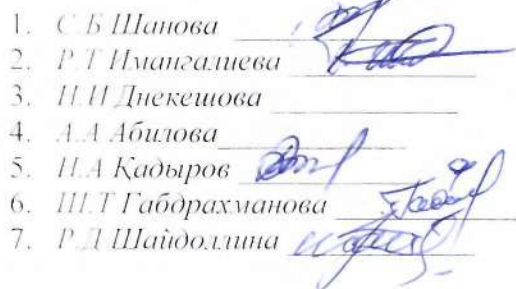 1. С.Б Шанова
2. Р.Т Имангалиева
3. Н.И Днекешова
4. А.А Абилова
5. Н.А Қадыров
6. Ш.Т Габдрахманова
7. Р.Д Шайдоллина